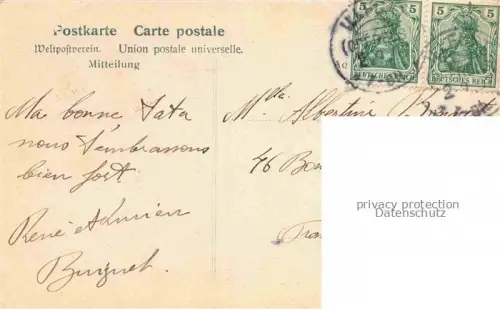 Postkarte Carte postale
Weltpostverein. Union postale universelle.
Mitteilung
5 5 5 5
DEUTSCHES REICH DEUTSCHES REICH
Ma bonne Tata
nous t'embrassons
bien fort
René et Lucien
Buguet.
Mlle Albertine
46 Bou
Fran
privacy protection
Datenschutz